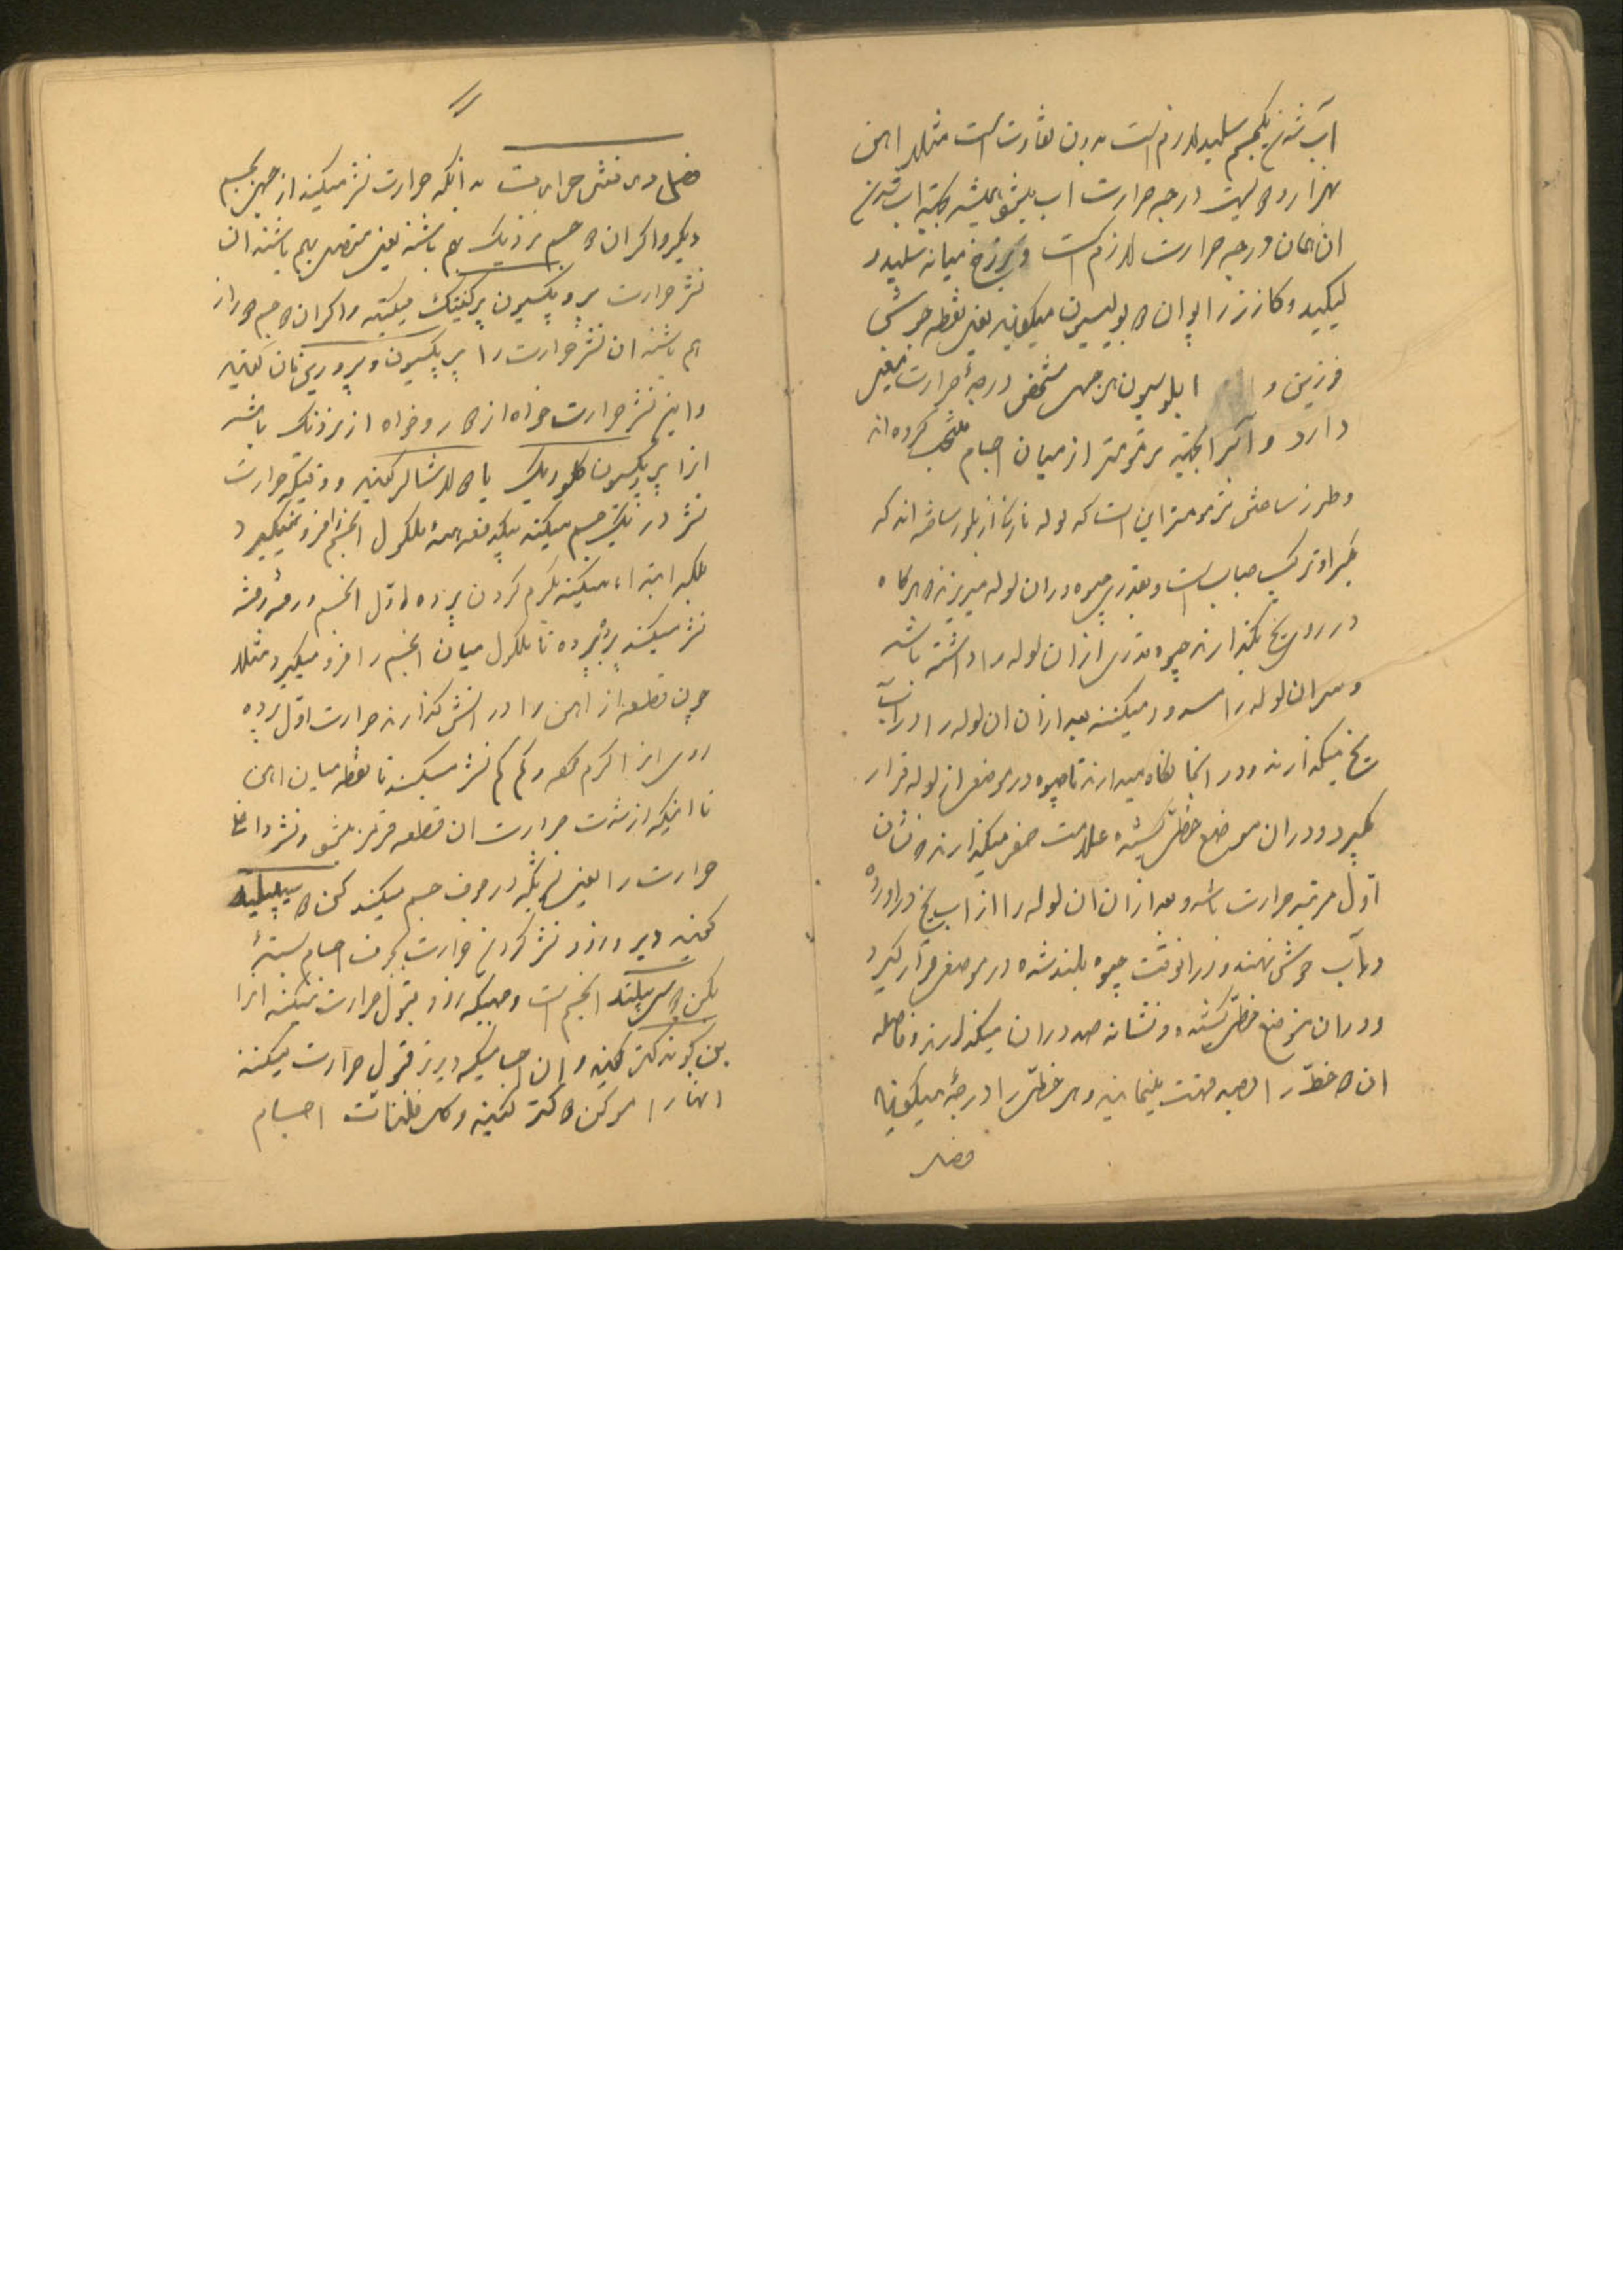 آب شدن یکجسم سلید لازم است بدون تفاوت است مثلا اهن
بهزار و دویست درجه حرارت اب میشود همیشه بجهته اب شدن
ان همان درجه حرارت لازم است و برزخ میانه سلید و
لیکید و کاز زرا پوان د بولیسیون میکویند یعنی نقطه جوش
فوزیون و ابلوسیون هر جسم مشخص درجهٔ حرارت معین
دارد و آنرا بجهته ترمومتر از میان اجسام منتخب کرده اند
و طرز ساختن ترمومتر این است که لوله نازک از بلور ساخته اند که
زیر او ترکیب حباب است و بقدری جیوه در ان لوله میریزند که هر کاه
در روی یخ بکذارند جیوه قدری از ان لوله را داشته باشد
و سر ان لوله را مسدود میکنند بعد از ان ان لوله را در آب
یخ میکذارند و در انجا نکاه میدارند تا جیوه در موضعی از لوله قرار
کیرد و در ان موضع خطی کشیده علامت صفر میکذارند که نشان
اول مرتبه حرارت باشد و بعد از ان ان لوله را از اب یخ در اورده
در آب جوش نهند و در انوقت جیوه بلند شده در موضعی قرار کیرد
و در ان موضع خطی کشیده و نشانه صد در ان میکذارند و فاصله
ان دو خط را بصد قسمت مینمایند و هر خطی را درجهٔ میکویند
فصل
۱۱
فصل در نشر حرارت بدانکه حرارت نشر میکند از جسمی بجسم
دیکر و اکر ان دو جسم نزدیک بهم باشند یعنی متصل بهم باشند ان
نشر حرارت پروپکسیون پرکنتکت میکنند و اکر ان دو جسم دور از
هم باشند ان نشر حرارت را پرپکسیون و پروریناین کفتند
و این نشر حرارت خواه از دور و خواه از نزدیک باشد
انرا پرپکسیون کلوریک یا دلاشالر کفتند و وقتیکه حرارت
نشر در یک جسم میکند یکدفعه همهٔ ملکول انجسم را فرو نمیکیرد
بلکه ابتداء میکند بکرم کردن پرده اول انجسم و رفته رفته
نشر میکند پرده بپرده تا ملکول میان انجسم را فرو میکیرد مثلا
چون قطعه از اهن را در اتش کذارند حرارت اول پرده
روی انرا کرم کرده و کم کم نشر میکند تا نقطه میان اهن
تا اینکه از شدت حرارت ان قطعه قرمز میشود و نشر داخلی
حرارت را یعنی نشریکه در جوف جسم میکند کن د سیبیلیته
کفتند دیر و زود نشر کردن حرارت بجوف اجسام بستهٔ
بکن د سیبیلیته انجسم است و جسمیکه زود قبول حرارت میکند انرا
بن کوندکتر کفتند و ان اجسامیکه دیرتر قبول حرارت میکنند
انها را موکن دکتر کفتند و کل فلزات اجسام